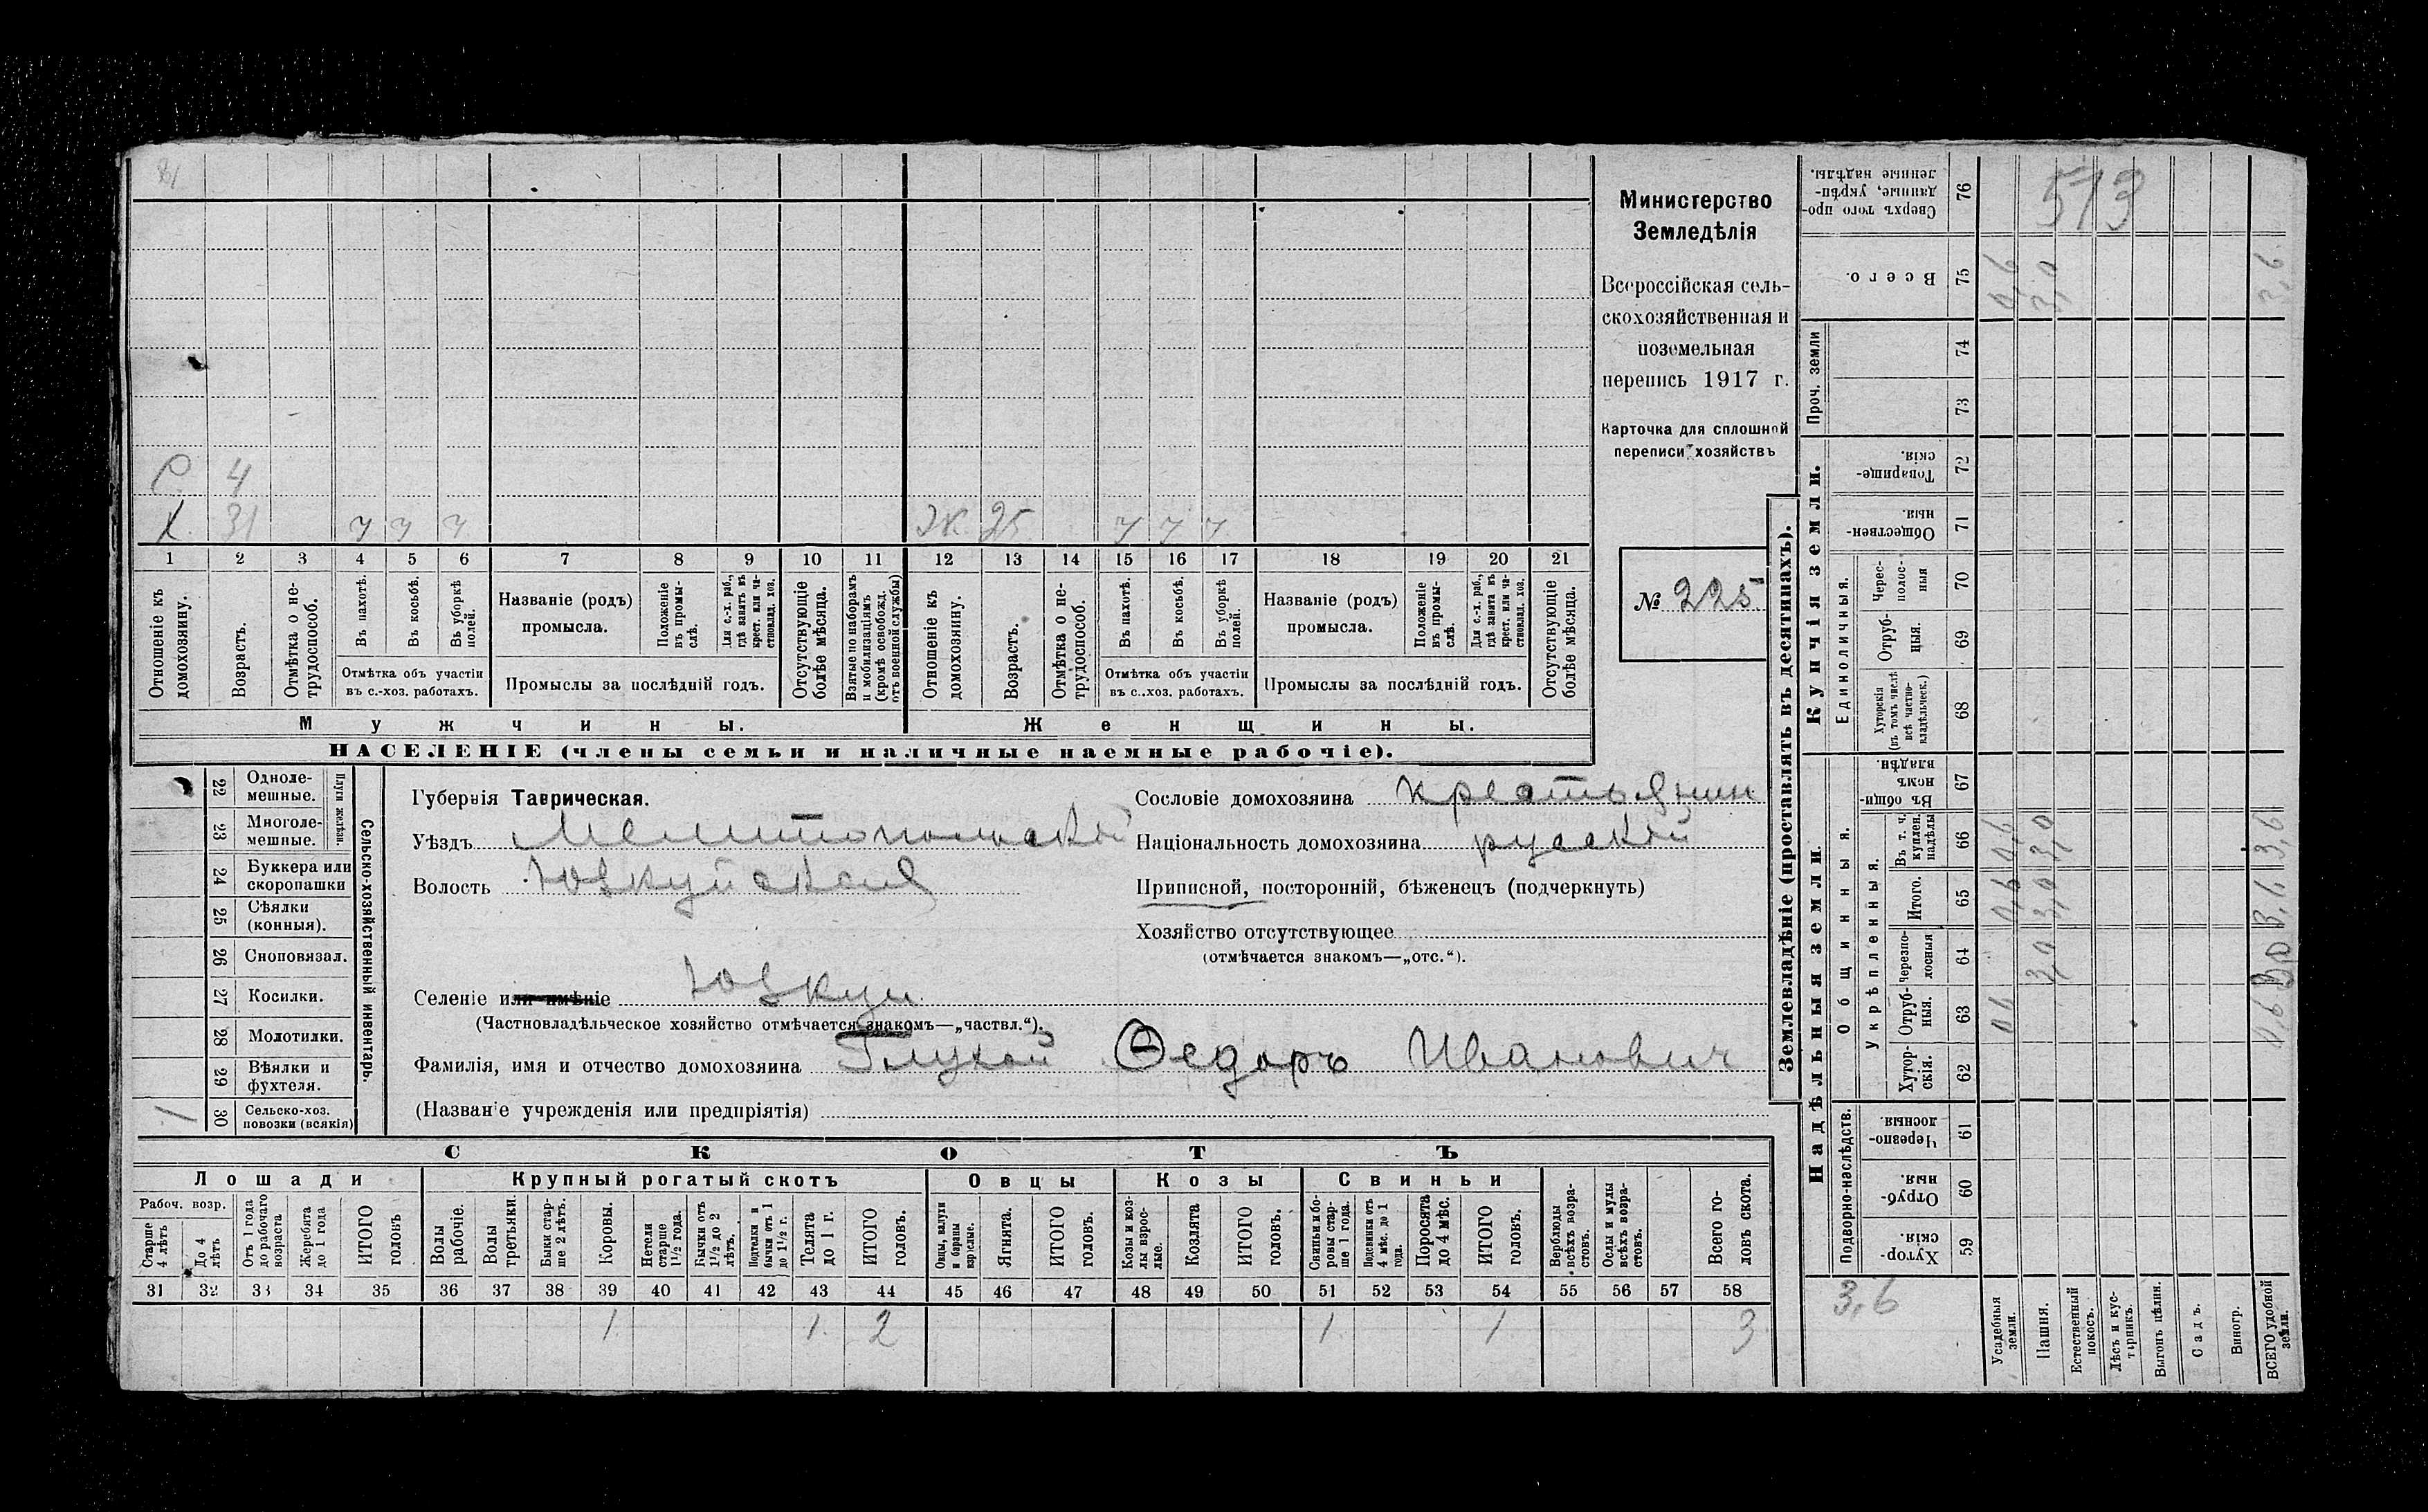 513
Министерство
Земледѣлія
Всероссійская сель-
скохозяйственная и
поземельная
перепись 1917 г.
Карточка для сплошной
переписи хозяйствъ
№ 225
С 4
Х 31 ч ч ч Ж 25 ч ч ч
1 2 3 4 5 6 7 8 9 10 11 12 13 14 15 16 17 18 19 20 21
Отношеніе къ домохозяину.
Возрастъ.
Отмѣтка о не-трудоспособ.
Въ пахотѣ.
Въ косьбѣ.
Въ уборкѣ полей.
Отмѣтка объ участіи
въ с.-хоз. работахъ.
Названіе (родъ)
промысла.
Положеніе въ промы-слѣ.
Для с.-х. раб., гдѣ занятъ въ крест. или ча-ствовлад. хоз.
Промыслы за послѣдній годъ.
Отсутствующіе болѣе мѣсяца.
Взятые по наборамъ и мобилизаціямъ (кромѣ освобожд. отъ военной службы)
Отношеніе къ домохозяину.
Возрастъ.
Отмѣтка о не-трудоспособ.
Въ пахотѣ.
Въ косьбѣ.
Въ уборкѣ полей.
Отмѣтка объ участіи
въ с.-хоз. работахъ.
Названіе (родъ)
промысла.
Положеніе въ промы-слѣ.
Для с.-х. раб., гдѣ занята въ крест. или ча-ствовлад. хоз.
Промыслы за послѣдній годъ.
Отсутствующіе болѣе мѣсяца.
Мужчины. Женщины.
НАСЕЛЕНІЕ (члены семьи и наличные наемные рабочіе).
Сельско-хозяйственный инвентарь.
Плуги желѣзн.
22 Одноле-мешные.
23 Многоле-мешные.
24 Буккера или скоропашки
25 Сѣялки (конныя).
26 Сноповязал.
27 Косилки.
28 Молотилки.
29 Вѣялки и фухтеля.
1 30 Сельско-хоз. повозки (всякія)
Губернія Таврическая.
Уѣздъ Мелитопольскій
Волость Юзкуйская
Селеніе или имѣніе Юзкуи
(Частновладѣльческое хозяйство отмѣчается знакомъ—„частвл.“).
Сословіе домохозяина крестьянин
Національность домохозяина русскій
Приписной, посторонній, бѣженецъ (подчеркнуть)
Хозяйство отсутствующее
(отмѣчается знакомъ—„отс.“).
Фамилія, имя и отчество домохозяина Глухой Ѳедоръ Иванович
(Названіе учрежденія или предпріятія)
СКОТЪ
Лошади Крупный рогатый скотъ Овцы Козы Свиньи
Рабоч. возр.
Старше 4 лѣтъ
До 4 лѣтъ
Отъ 1 года до рабочаго возраста
Жеребята до 1 года
ИТОГО головъ
Волы рабочіе.
Волы третьяки.
Быки стар-ше 2 лѣтъ.
Коровы.
Нетели старше 1½ года.
Бычки отъ 1½ до 2 лѣтъ.
Подтелки и бычки отъ 1 до 1½ г.
Телята до 1 г.
ИТОГО головъ.
Овцы, валухи и бараны взрослые.
Ягнята.
ИТОГО головъ.
Козы и коз-лы взрос-лые.
Козлята
ИТОГО головъ.
Свиньи и бо-ровы стар-ше 1 года.
Подсвинки отъ 4 мѣс. до 1 года.
Поросята до 4 мѣс.
ИТОГО головъ.
Верблюды всѣхъ возра-стовъ.
Ослы и мулы всѣхъ возра-стовъ.
Всего го-ловъ скота.
31 32 33 34 35 36 37 38 39 40 41 42 43 44 45 46 47 48 49 50 51 52 53 54 55 56 57 58
1 1 2 1 1 3
Землевладѣніе (проставлять въ десятинахъ).
Сверхъ того про-данные, укрѣп-ленные надѣлы. 76
Всего. 75 0,6 3,0 3,6
Проч. земли 74
73
Купчія земли.
Товарище-скія. 72
Обществен-ныя 71
Единоличныя.
Черес-полос-ныя 70
Отруб-ныя. 69
Хуторскія (въ томъ числѣ всѣ частно-владѣльческ.) 68
Надѣльныя земли.
Общинныя.
Въ общи-номъ владѣн. 67
Укрѣпленныя.
Въ т. ч. куплен. надѣлы 66 0,6 3,0 3,6
Итого. 65 0,6 3,0 3,6
Черезпо-лосныя 64 3,0 3,0
Отруб-ныя. 63 0,6 0,6
Хутор-скія. 62
Подворно-наслѣдств.
Черезпо-лосныя 61
Отруб-ныя 60
Хутор-скія. 59
3,6
Усадебныя земли.
Пашня.
Естественный покосъ.
Лѣсъ и кус-тарникъ.
Выгонъ цѣлин.
Садъ.
Виногр.
ВСЕГО удобной земли.